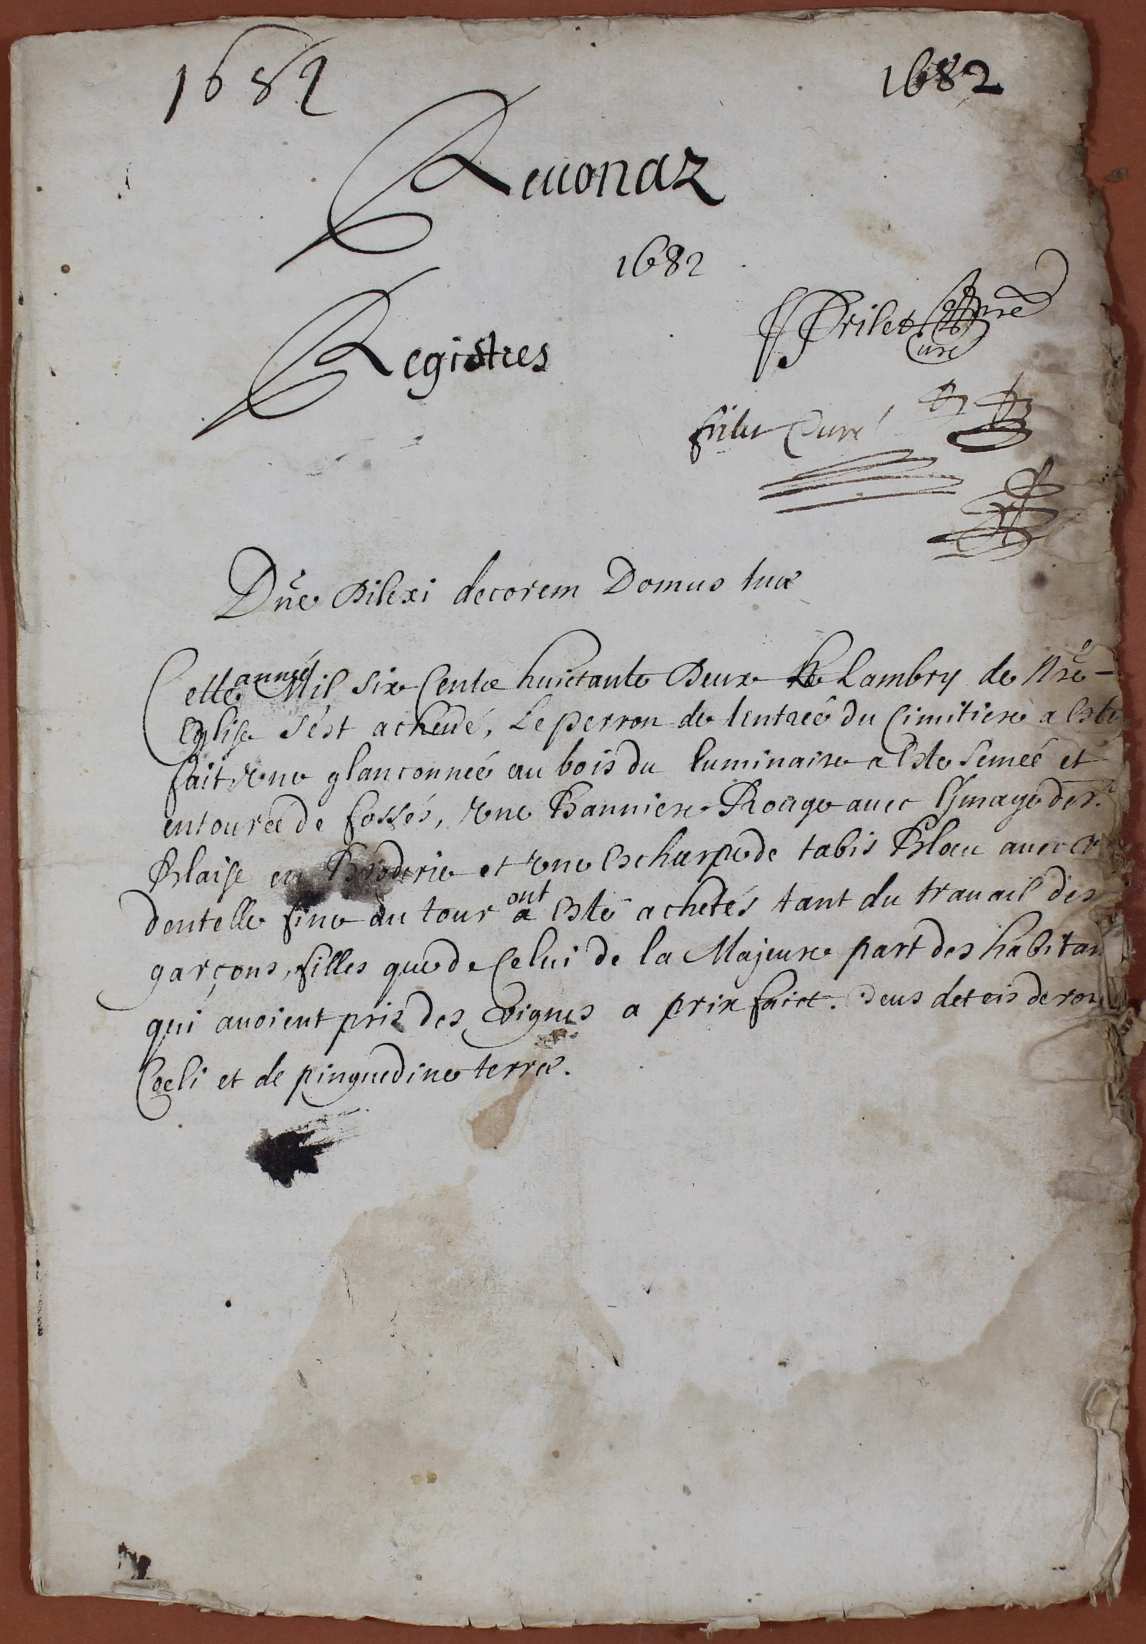 1682
1682
Reuonaz
1682
Registres
Curé
Curé
Dñe Dilexi decorem Domus tuæ
Cette année Mil Six Centz huictante Deux le Lambry de Nrē
Eglise s'est acheué, Le perron de lentreé du Cimitiere a Este
fait, Vne glanconneé au bois du luminaire a Este Semeé et
entourée de fossés, Vne Banniere Rouge auec lymage de St
Blaise en Broderie et Vne Escharpe de tabis Bleu auec
dentelle fine au tour ont Esté achetés tant du trauail des
garçons, filles que de Celui de la Majeure part des habitan
qui auoient pris des Vignes a prix faict. Deus det eis de rore
Coeli et de pinguedine terræ.